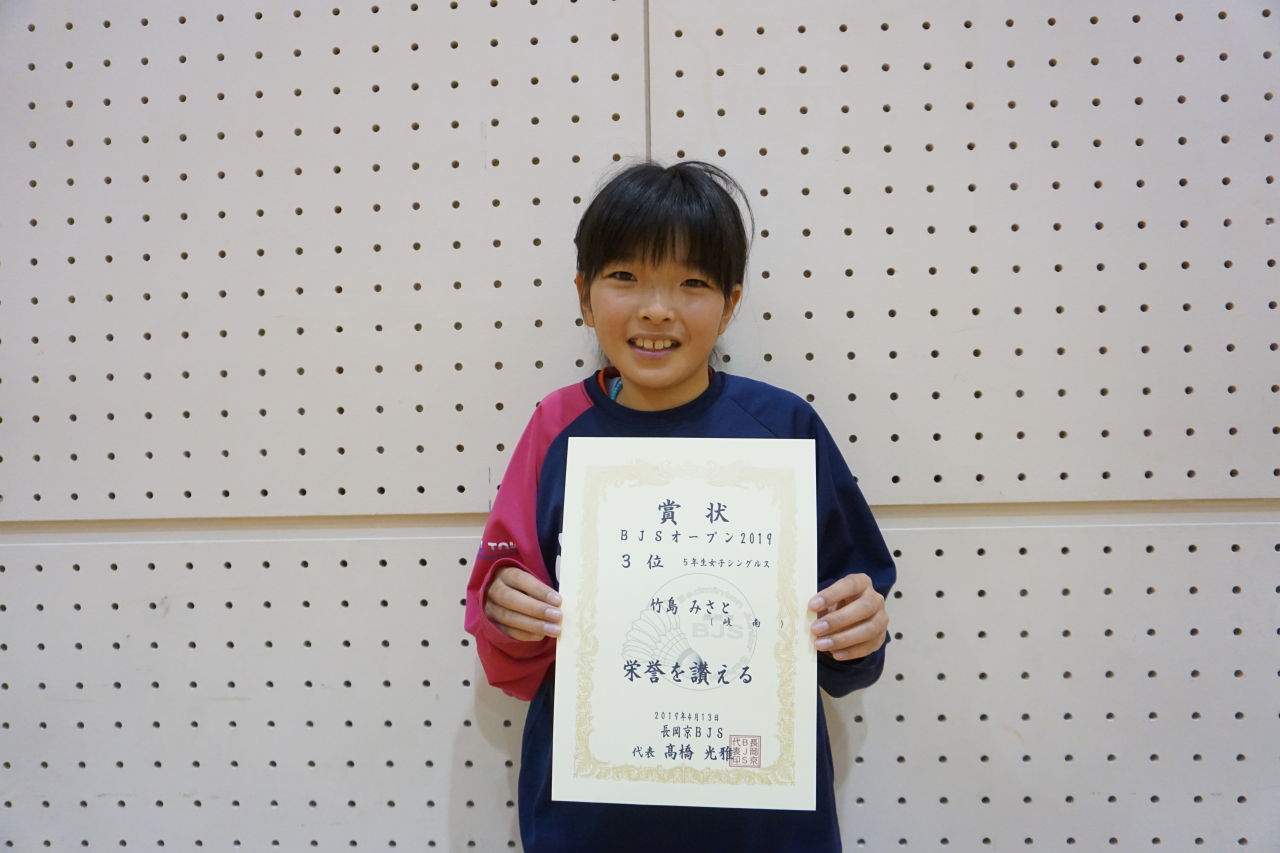 賞状
BJSオープン2019
3位 5年生女子シングルス
竹島 みさと
(岐南)
BJS
栄誉を讃える
2019年4月13日
長岡京BJS
代表 高橋 光雅
長岡京
BJS
代表印